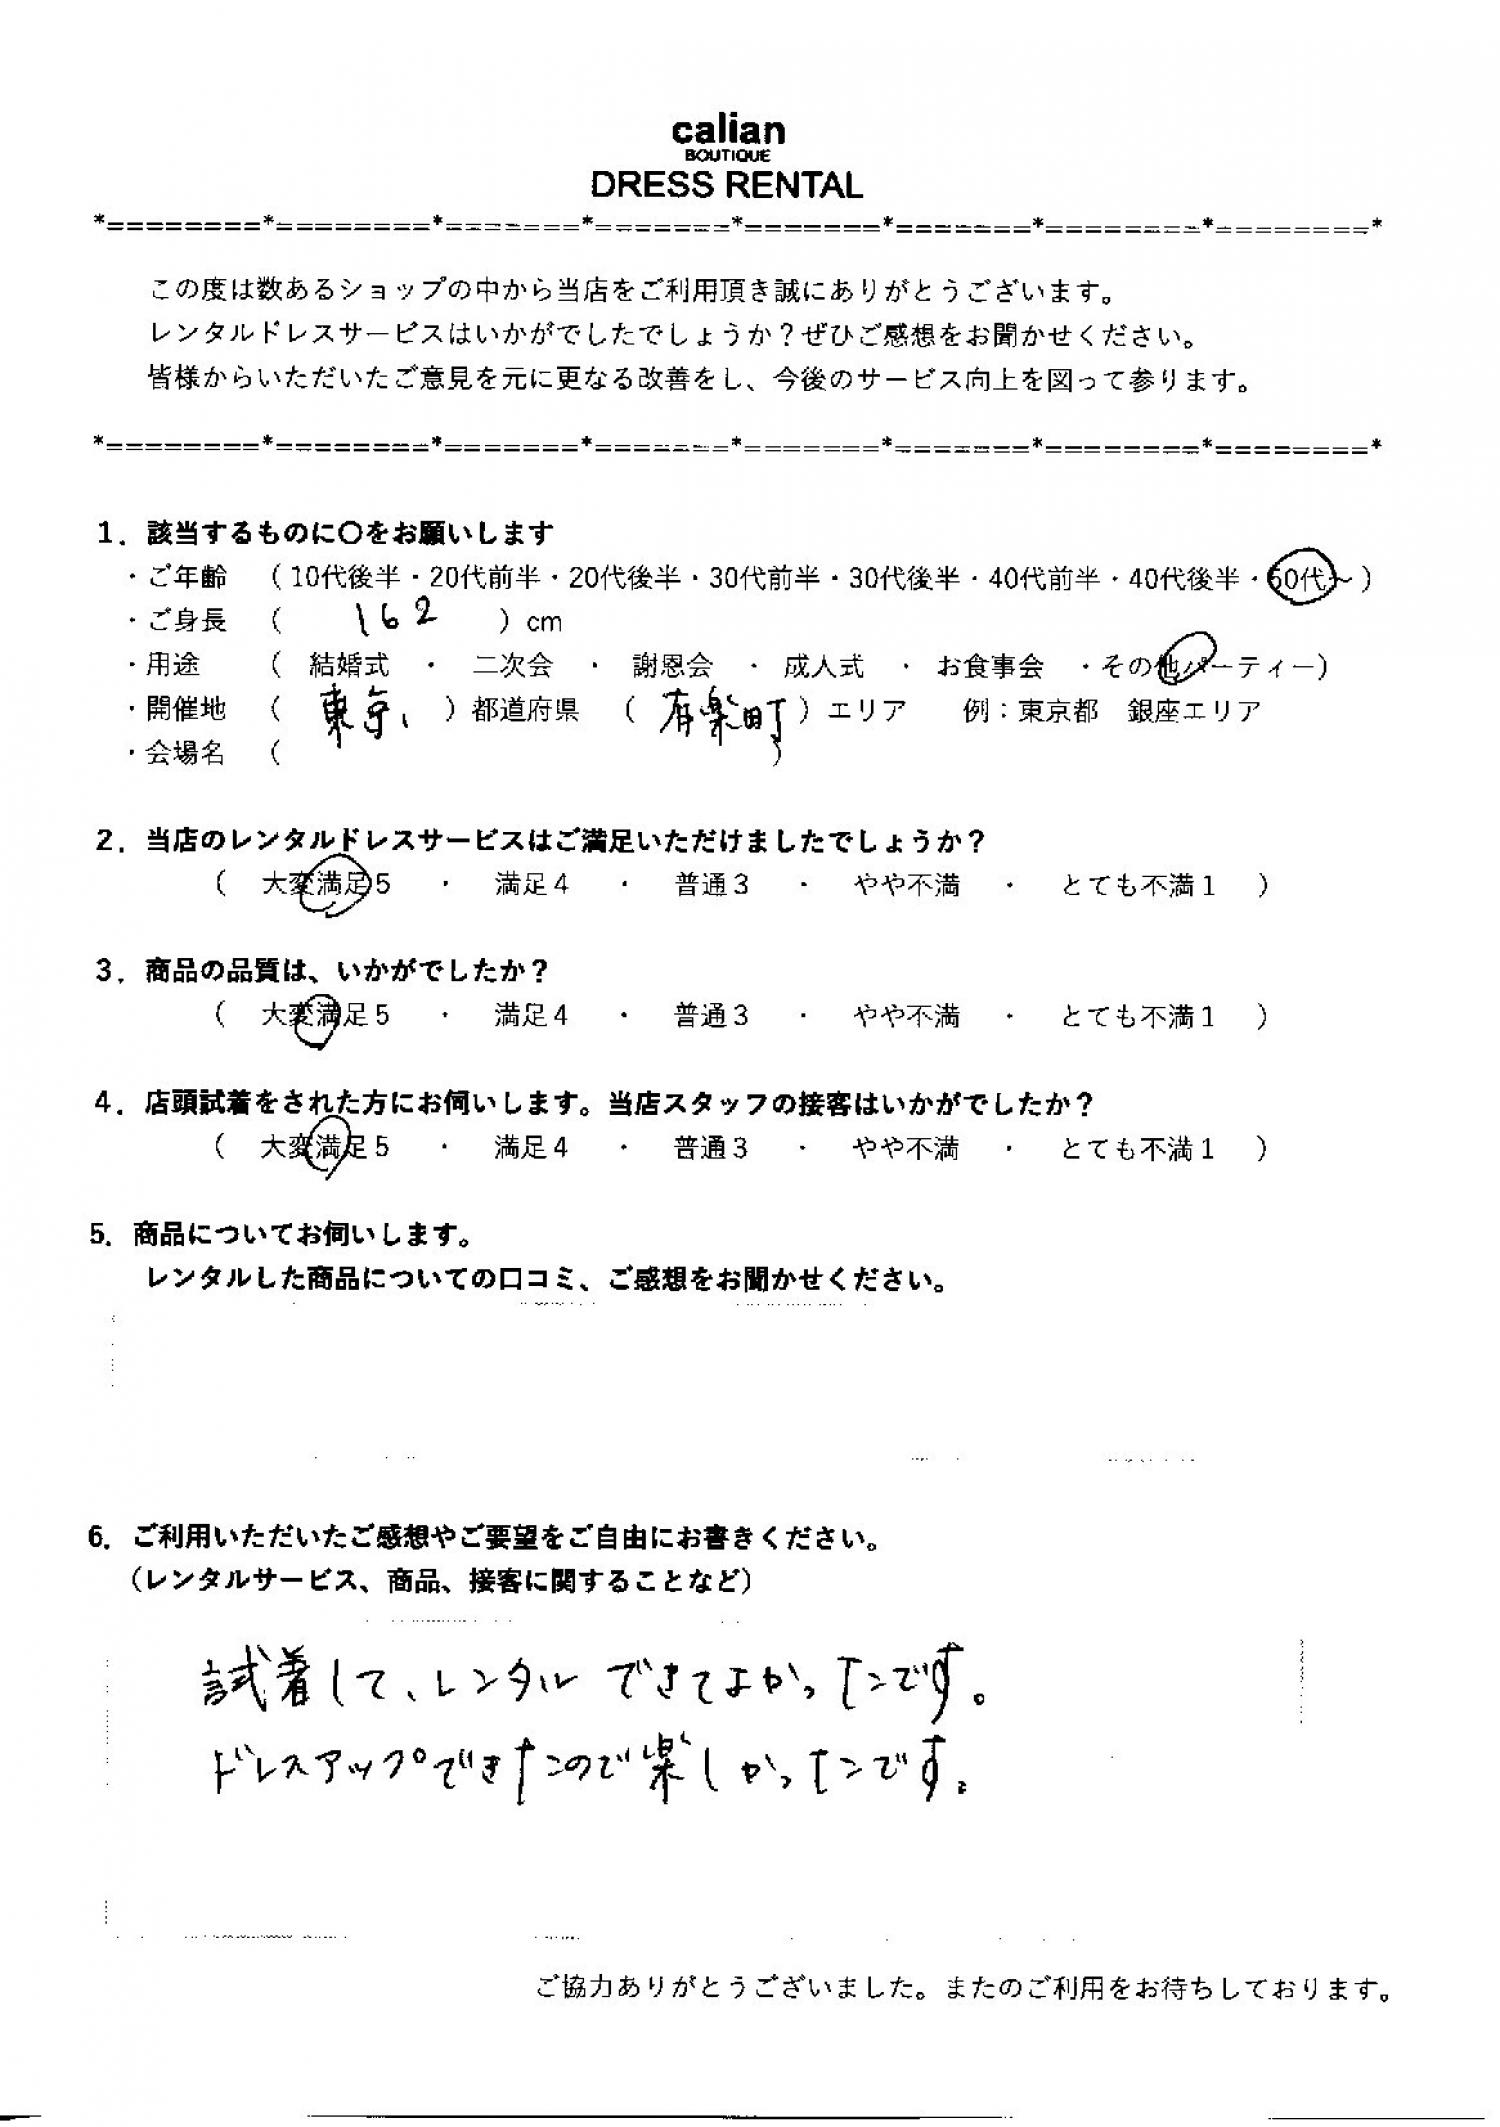 calian
BOUTIQUE
DRESS RENTAL
*========*========*=======*=======*=======*=======*========*========*
この度は数あるショップの中から当店をご利用頂き誠にありがとうございます。
レンタルドレスサービスはいかがでしたでしょうか？ぜひご感想をお聞かせください。
皆様からいただいたご意見を元に更なる改善をし、今後のサービス向上を図って参ります。
*========*========*=======*=======*=======*=======*========*========*
1．該当するものに〇をお願いします
・ご年齢　（10代後半・20代前半・20代後半・30代前半・30代後半・40代前半・40代後半・50代～）
・ご身長　（　162　）cm
・用途　（　結婚式　・　二次会　・　謝恩会　・　成人式　・　お食事会　・その他パーティー）
・開催地　（　東京　）都道府県　（　有楽町　）エリア　例：東京都　銀座エリア
・会場名　（　　）
2．当店のレンタルドレスサービスはご満足いただけましたでしょうか？
（　大変満足5　・　満足4　・　普通3　・　やや不満　・　とても不満1　）
3．商品の品質は、いかがでしたか？
（　大変満足5　・　満足4　・　普通3　・　やや不満　・　とても不満1　）
4．店頭試着をされた方にお伺いします。当店スタッフの接客はいかがでしたか？
（　大変満足5　・　満足4　・　普通3　・　やや不満　・　とても不満1　）
5．商品についてお伺いします。
レンタルした商品についての口コミ、ご感想をお聞かせください。
6．ご利用いただいたご感想やご要望をご自由にお書きください。
（レンタルサービス、商品、接客に関することなど）
試着して、レンタルできてよかったです。
ドレスアップできたので楽しかったです。
ご協力ありがとうございました。またのご利用をお待ちしております。